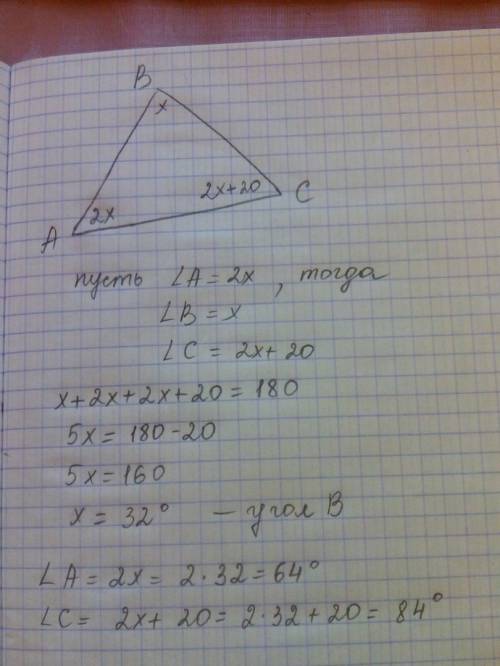 B
x
2x+20 C
A 2x
пусть ∠A = 2x , тогда
∠B = x
∠C = 2x+20
x+2x+2x+20 = 180
5x = 180-20
5x = 160
x = 32° — угол B
∠A = 2x = 2·32 = 64°
∠C = 2x + 20 = 2·32 + 20 = 84°